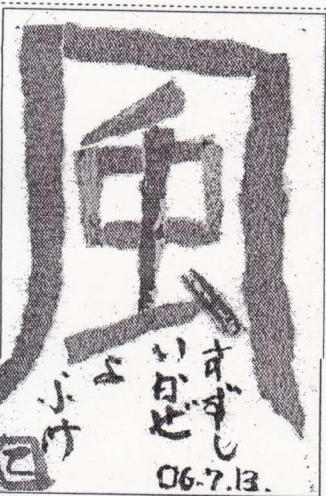 風
すずし
いかぜ
よ
ふけ
06.7.13.